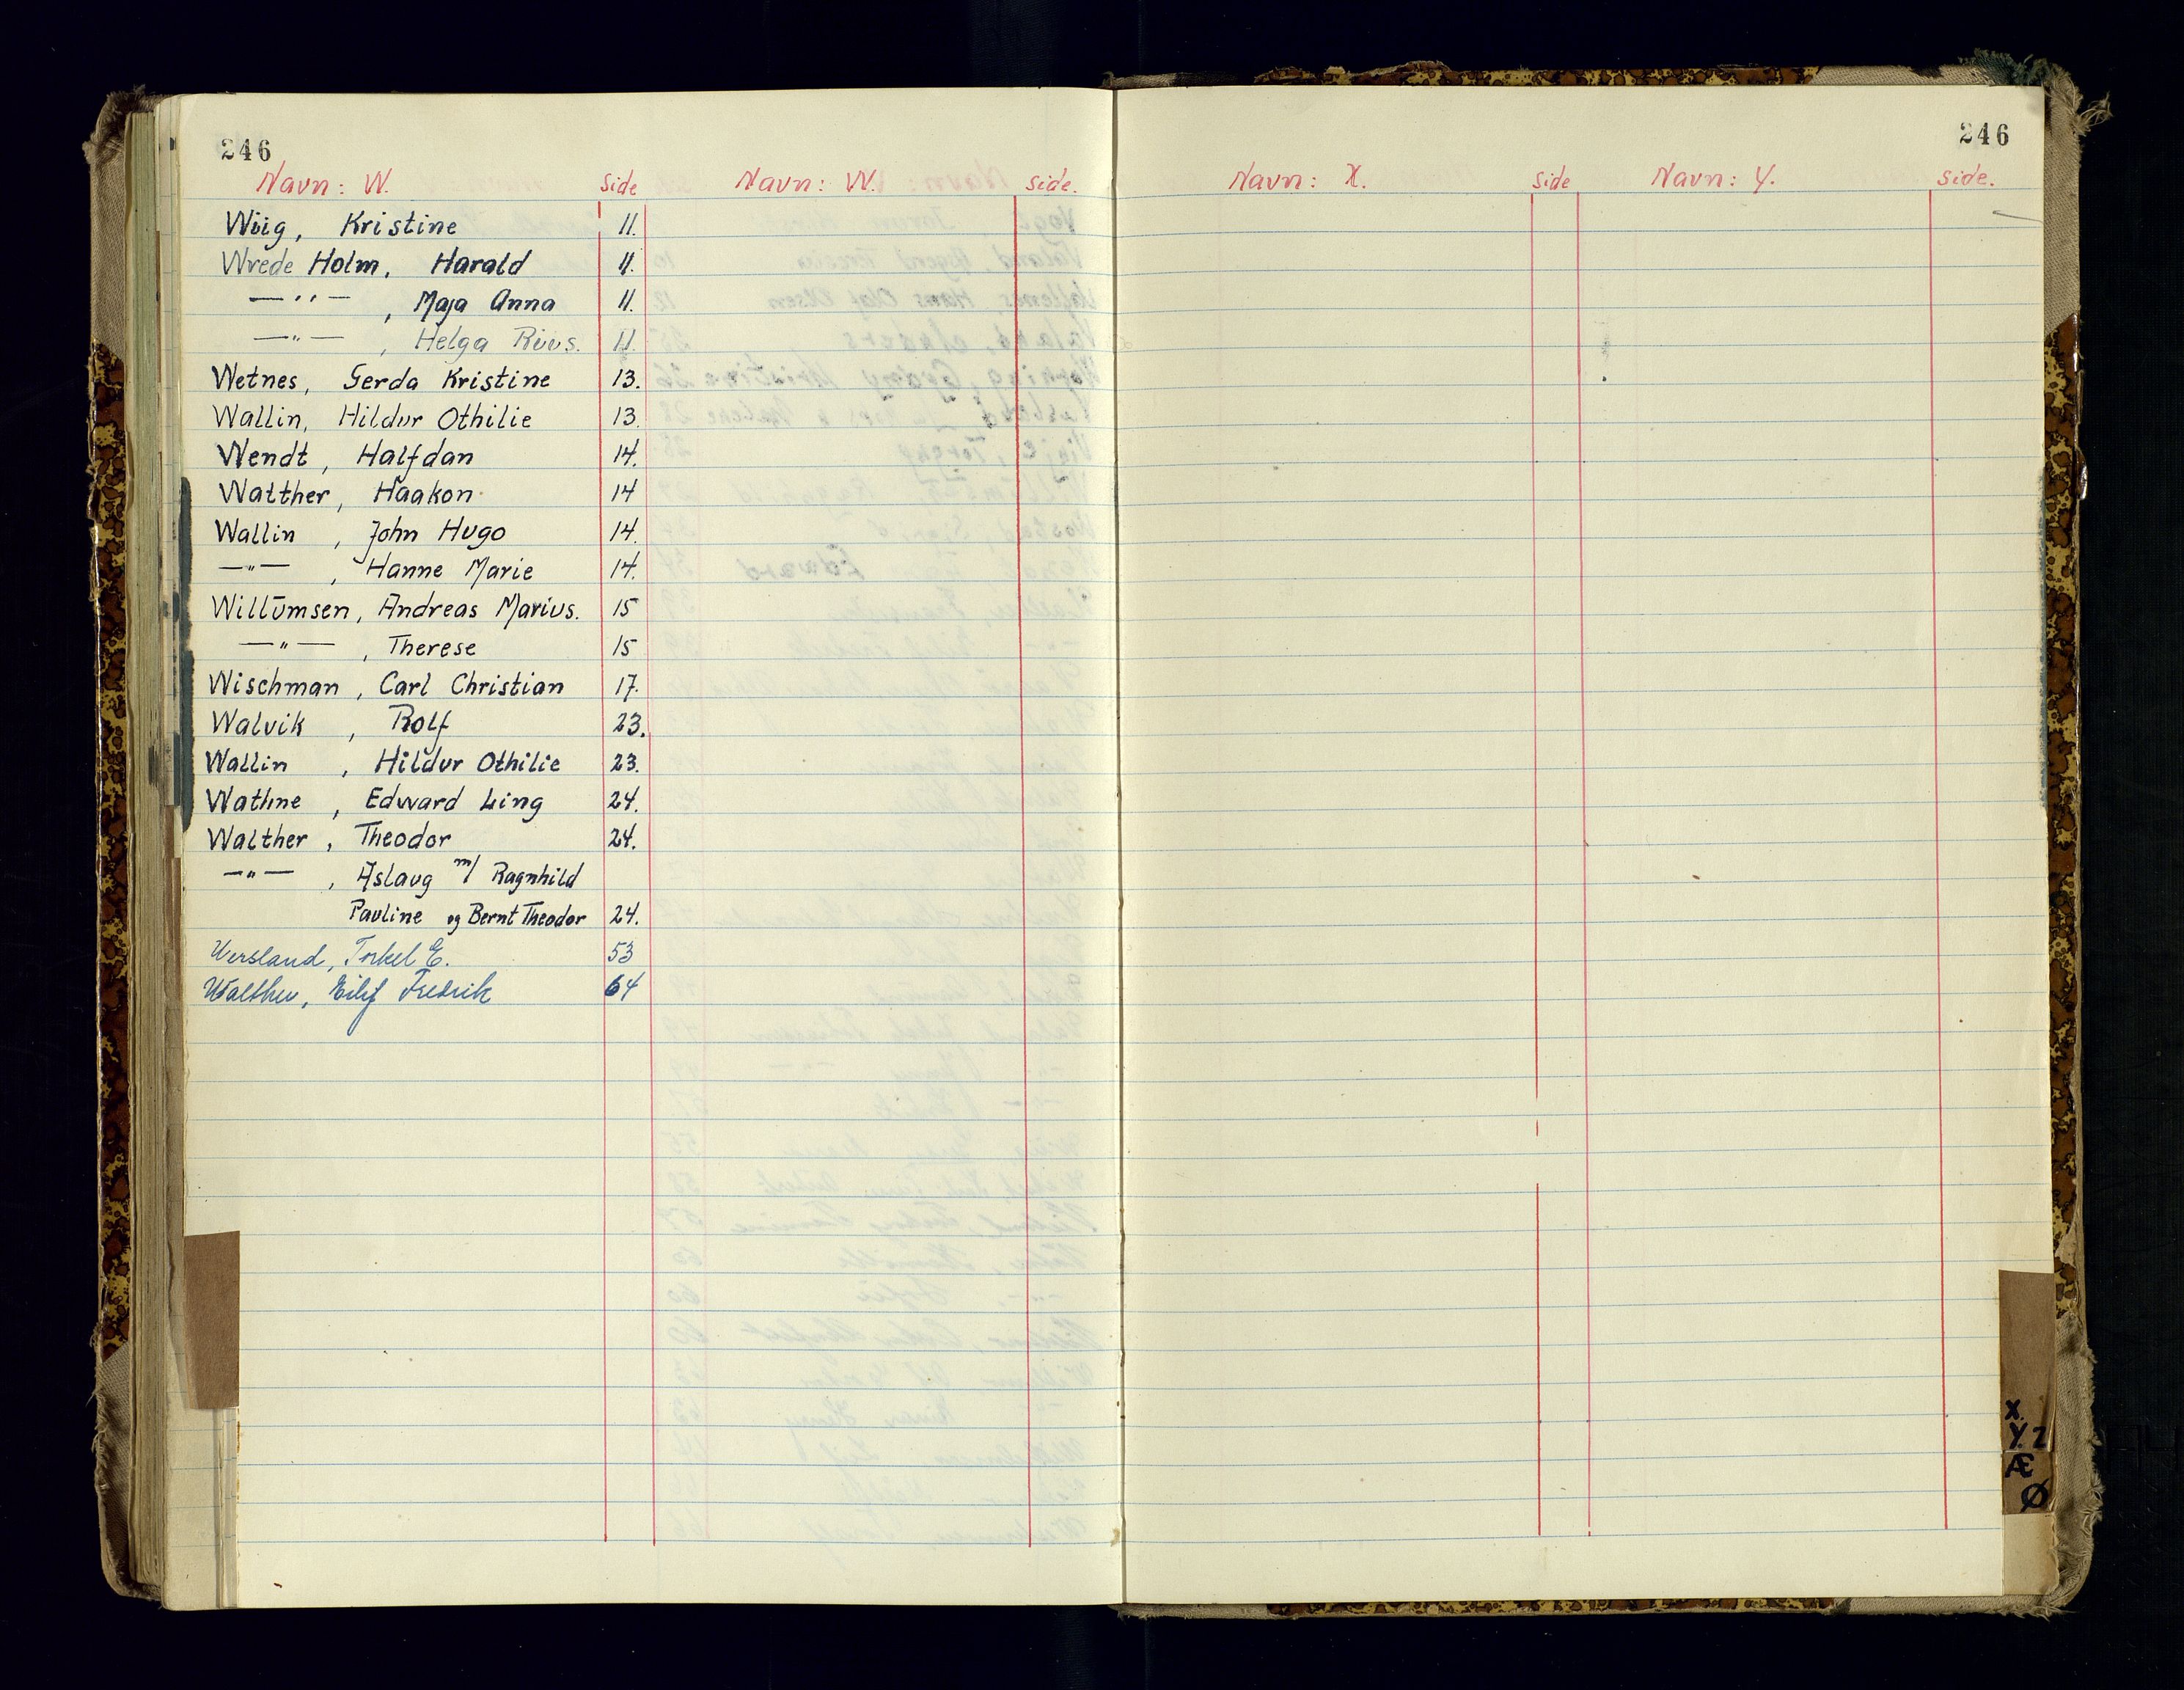 246
Navn: W. Side Navn: W. side.
Wiig, Kristine 11.
Wrede Holm, Harald 11.
—"—, Maja Anna 11.
—"—, Helga Riius. 11.
Wetnes, Gerda Kristine 13.
Wallin, Hildur Othilie 13.
Wendt, Halfdan 14.
Walther, Haakon 14
Wallin, John Hugo 14.
—"—, Hanne Marie 14.
Willumsen, Andreas Marius. 15
—"—, Therese 15
Wischman, Carl Christian 17.
Walvik, Rolf 23.
Wallin, Hildur Othilie 23.
Wathne, Edward Ling 24.
Walther, Theodor 24.
—"—, Aslaug m/ Ragnhild
Pauline og Bernt Theodor 24.
Wersland, Torkel E. 53
Walther, Eilif Fredrik 64
246
Navn: X. side Navn: Y. side.
X.
Y. Z
Æ
Ø